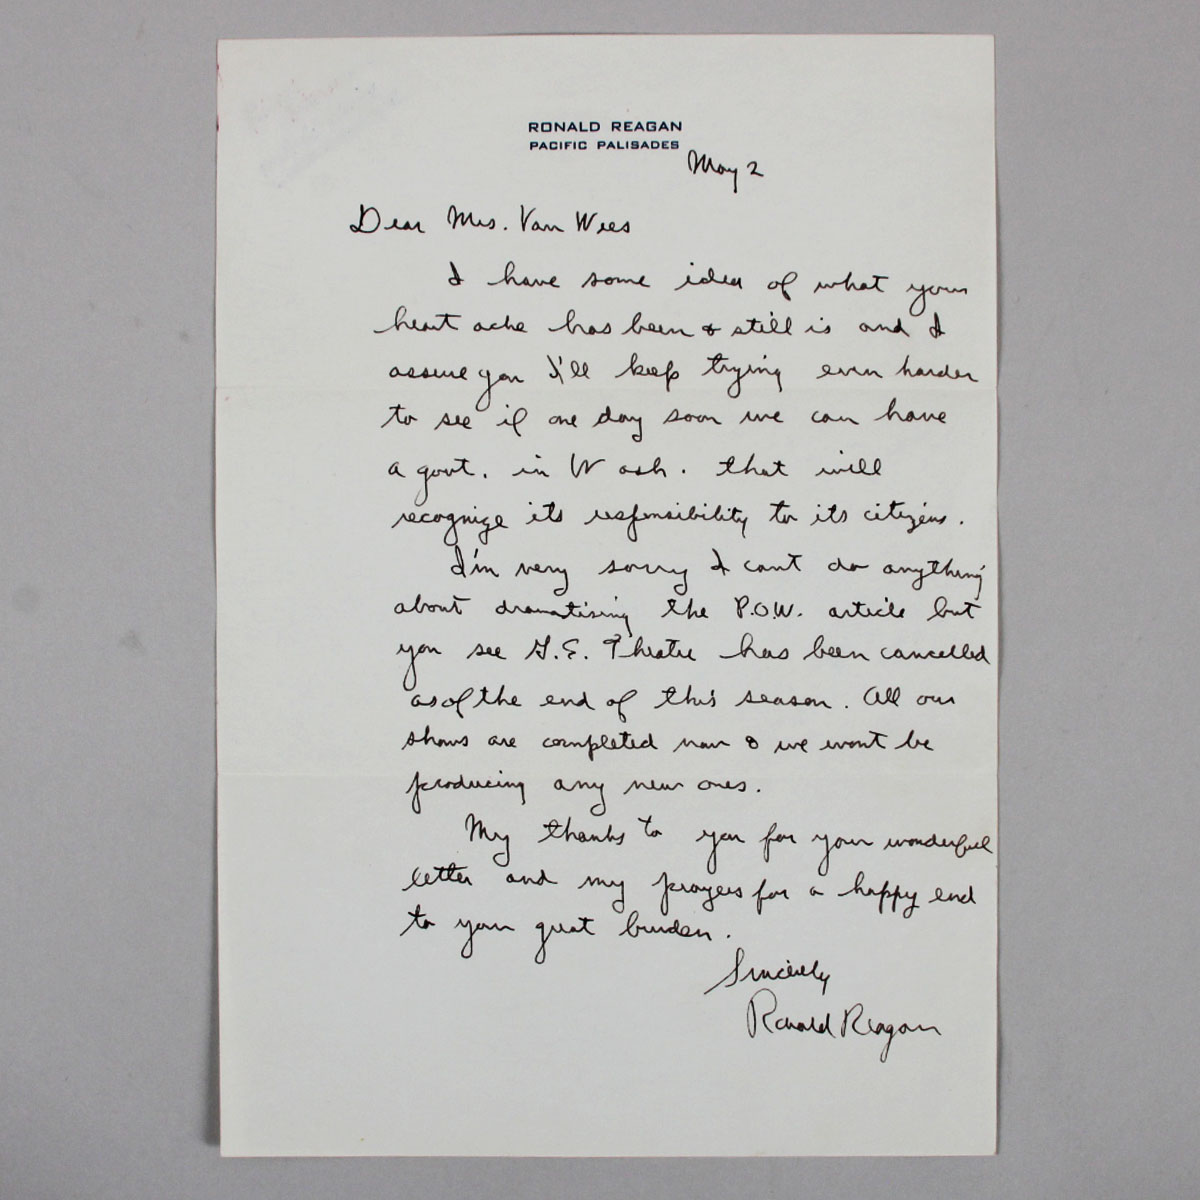 RONALD REAGAN
PACIFIC PALISADES
May 2
Dear Mrs. Van Wees
I have some idea of what your
heart ache has been & still is and I
assure you I'll keep trying even harder
to see if one day soon we can have
a govt. in Wash. that will
recognize its responsibility to its citizens.
I'm very sorry I cant do anything
about dramatising the P.O.W. article but
you see G.E. Theatre has been cancelled
as of the end of this season. All our
shows are completed now & we wont be
producing any new ones.
My thanks to you for your wonderful
letter and my prayers for a happy end
to your great burden.
Sincerely
Ronald Reagan